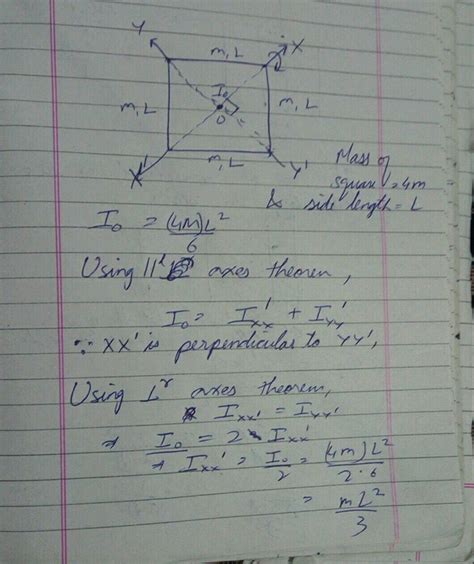 Y
X
m, L
I₀
m, L
m, L
O
m, L
X'
Y'
Mass of
square = 4m
& side length = L
I₀ = (4M)L²/6
Using ||ˡ axes theorem,
I₀ = Iₓₓ' + Iᵧᵧ'
∵ XX' is perpendicular to YY',
Using ⊥ʳ axes theorem,
Iₓₓ' = Iᵧᵧ'
⇒ I₀ = 2 Iₓₓ'
⇒ Iₓₓ' = I₀/2 = (4m)L²/2·6
= mL²/3